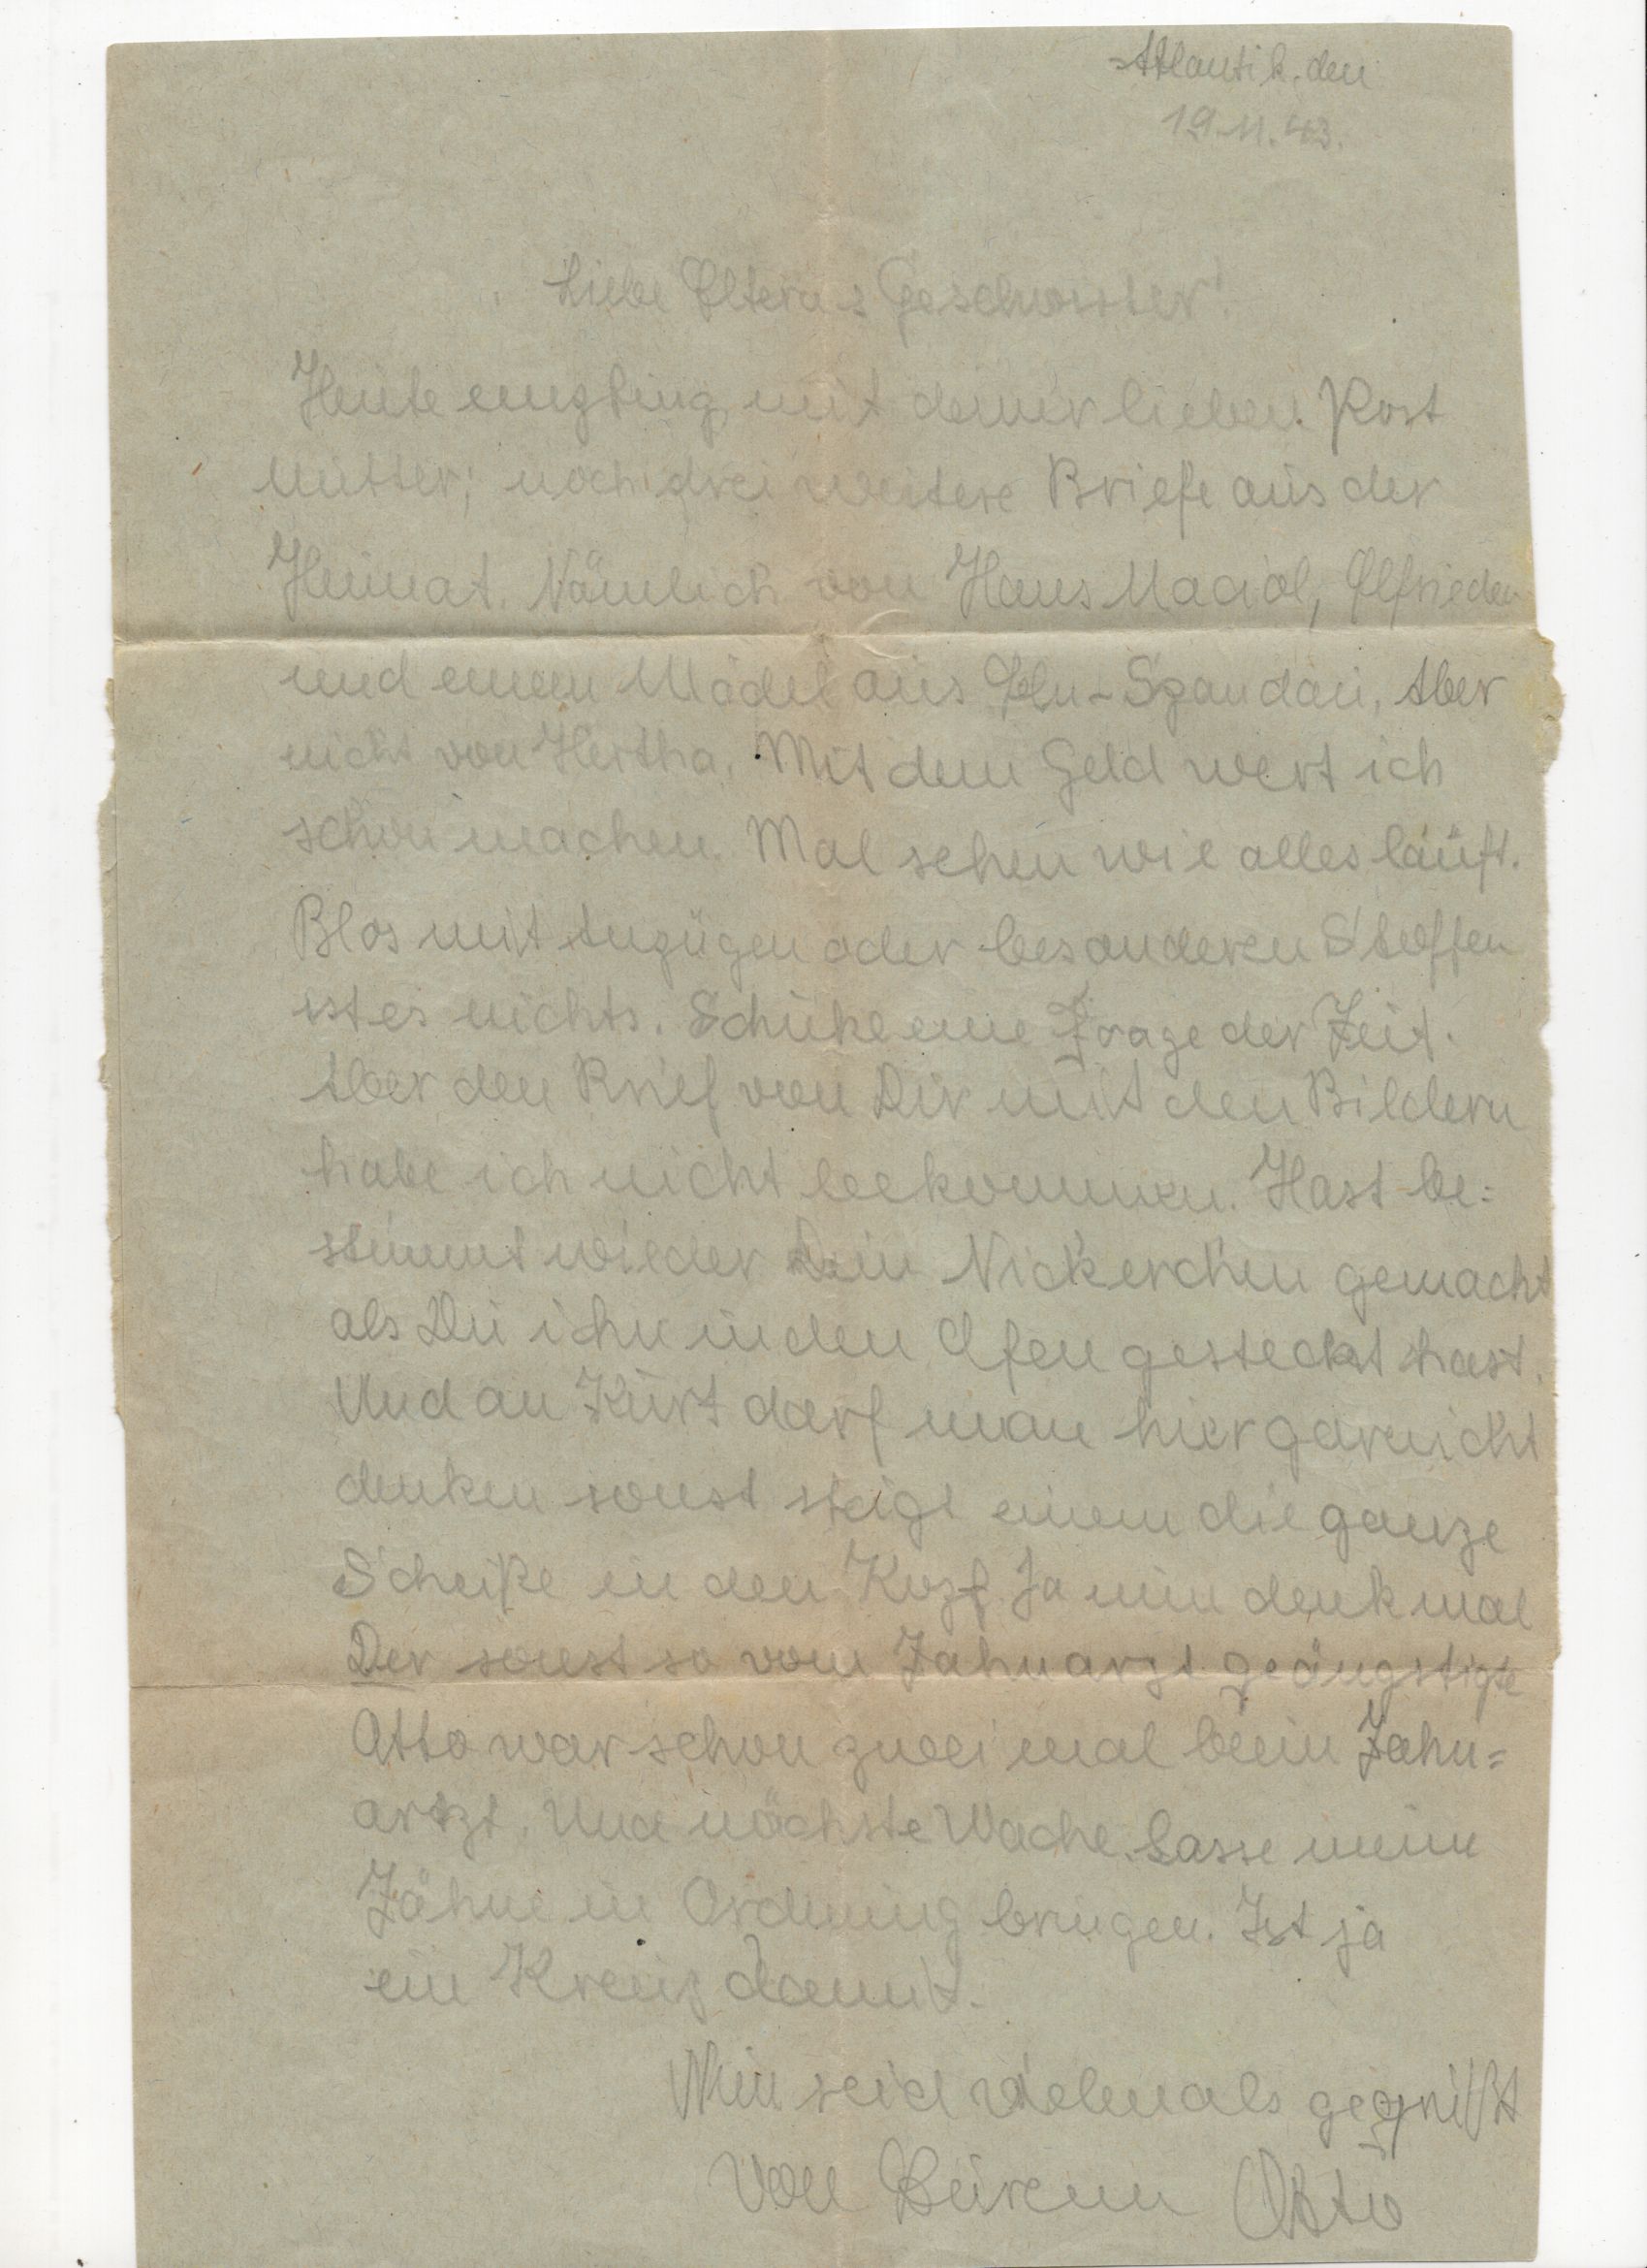 Atlantik, den
19.11.43.
Liebe Eltern u Geschwister!
Heute empfing mit deiner lieben Post
Mutter; noch drei weitere Briefe aus der
Heimat. Nämlich von Hans Maciol, Elfrieden
und einem Mädel aus Bln-Spandau, Aber
nicht von Hertha. Mit dem Geld wert ich
schon machen. Mal sehen wie alles läuft.
Blos mit Anzügen oder besonderen Stoffen
ist es nichts. Schuhe eine Frage der Zeit.
Aber den Brief von Dir mit den Bildern
habe ich nicht bekommen. Hast be=
stimmt wieder Dein Nickerchen gemacht
als Du ihn in den Ofen gesteckt hast.
Und an Kurt darf man hier garnicht
denken sonst steigt einem die ganze
Scheiße in den Kopf. Ja nun denk mal
Der sonst so vom Zahnarzt geängstigte
Otto war schon zwei mal beim Zahn=
artzt. Und nächste Woche. Lasse meine
Zähne in Ordnung bringen. Ist ja
ein Kreuz damit.
Nun seid vielmals gegrüßt
Von Eurem Otto